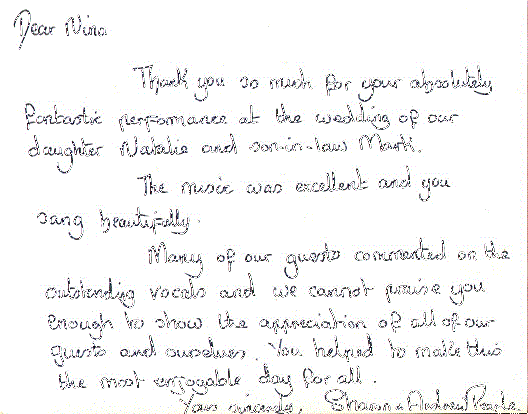 Dear Nina
Thank you so much for your absolutely
fantastic performance at the wedding of our
daughter Natalie and son-in-law Mark.
The music was excellent and you
sang beautifully.
Many of our guests commented on the
outstanding vocals and we cannot praise you
enough to show the appreciation of all of our
guests and ourselves. You helped to make this
the most enjoyable day for all.
Yours sincerely, Sharon & Andrew